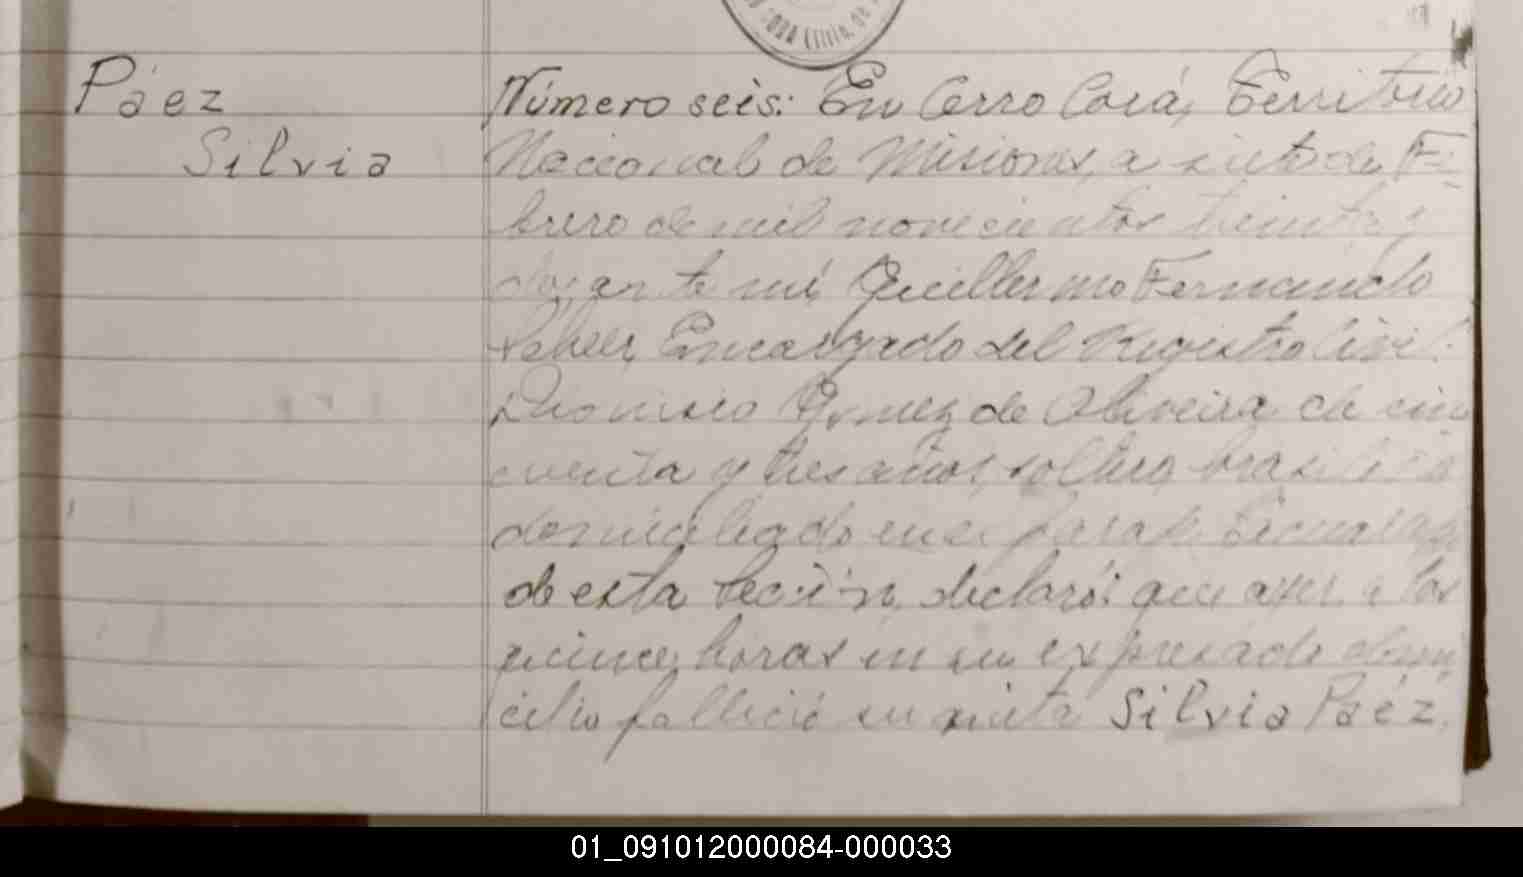 Páez
Silvia
Número seis: En Cerro Corá, Territorio
Nacional de Misiones, a siete de Fe-
brero de mil novecientos treinta y
dos, ante mí, Guillermo Fernando
Encargado del Registro Civil:
Dionisio Gomez de Oliveira de cin
cuenta y tres años, soltero, brasilero
domiciliado en el paraje
de esta Sección, declaró: que ayer a las
quince horas en su expresado domi
cilio falleció su nieta Silvia Paéz,
01_091012000084-000033